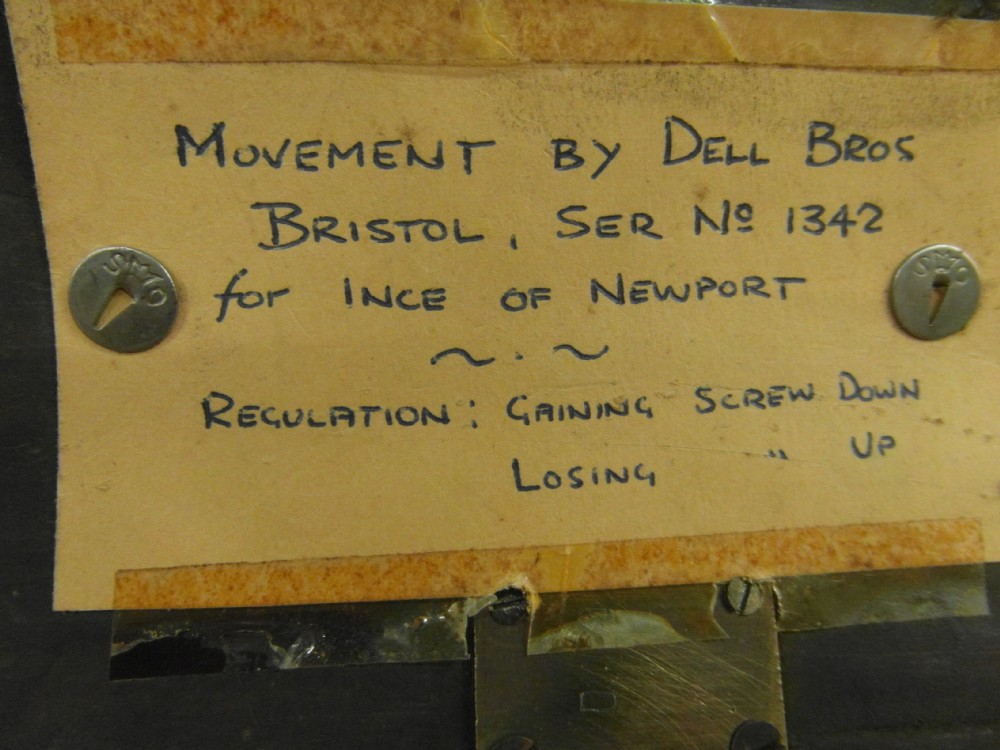 MOVEMENT BY DELL BROS
BRISTOL, SER Nº 1342
for INCE OF NEWPORT
~ . ~
REGULATION: GAINING SCREW DOWN
LOSING " UP